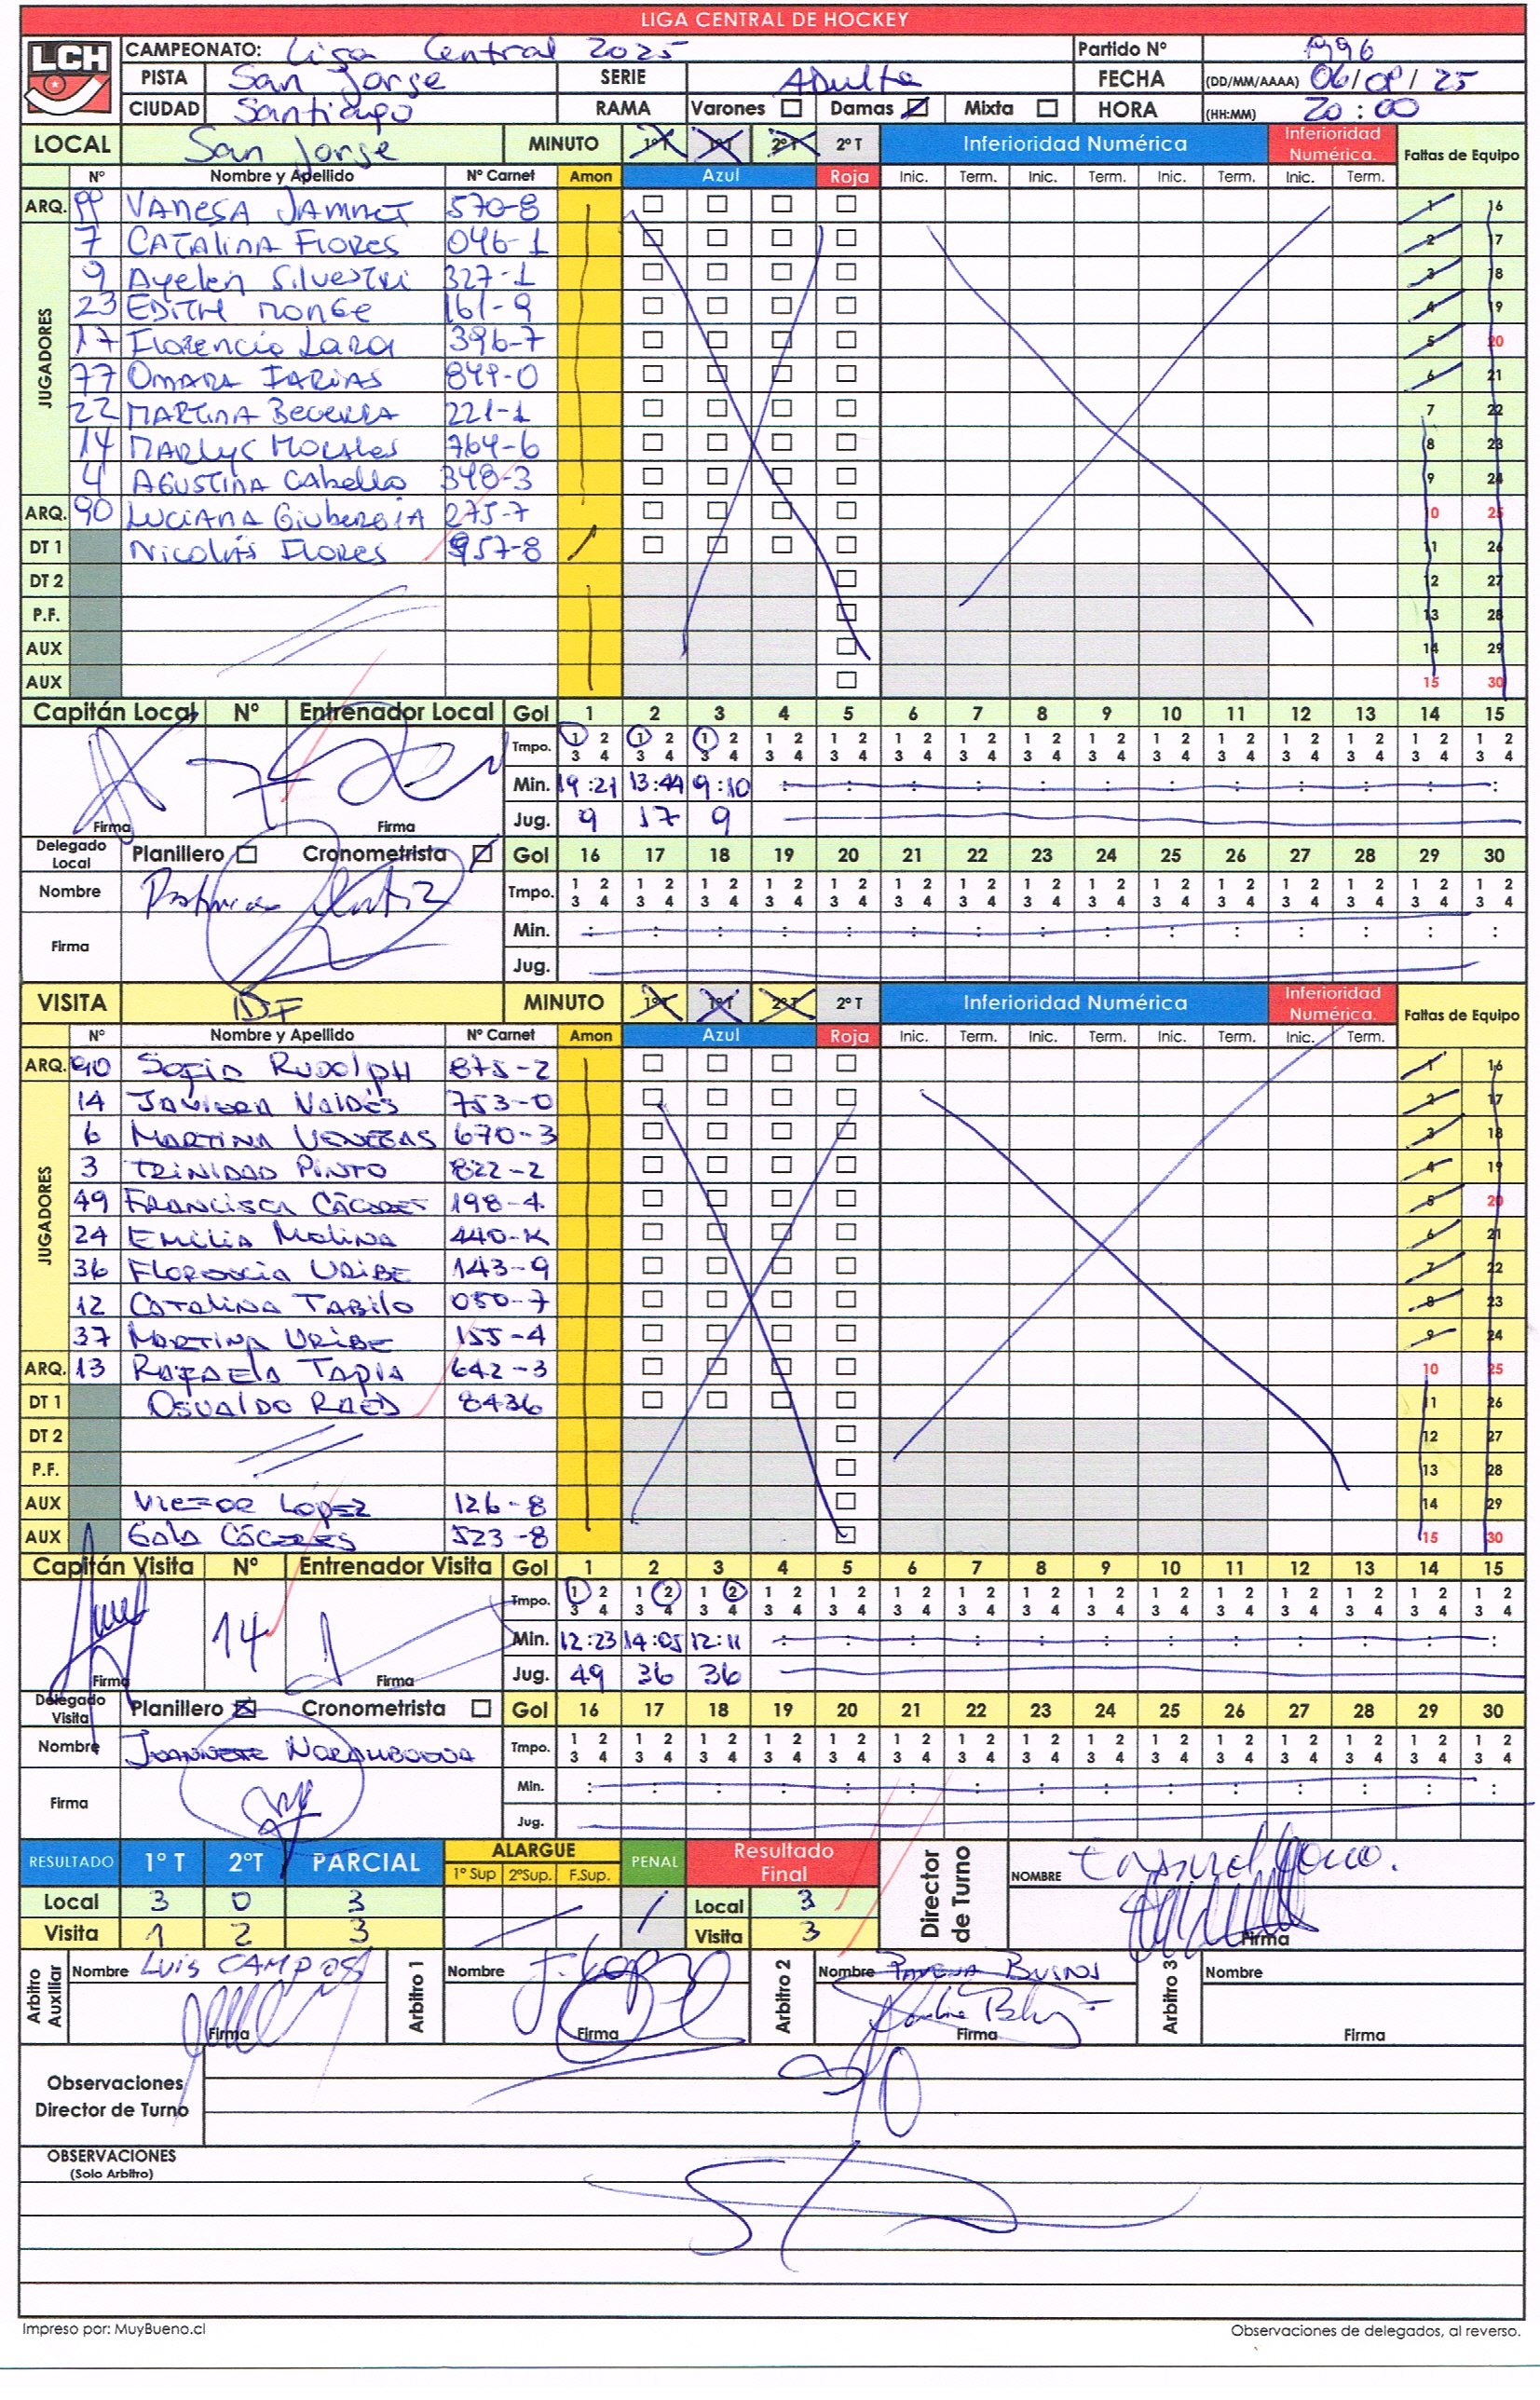 LIGA CENTRAL DE HOCKEY
LCH
CAMPEONATO: Liga Central 2025 Partido Nº 1996
PISTA San Jorge SERIE Adulta FECHA (DD/MM/AAAA) 06/09/25
CIUDAD Santiago RAMA Varones Damas Mixta HORA (HH:MM) 20:00
LOCAL San Jorge MINUTO 1ºT 1ºT 2ºT 2ºT Inferioridad Numérica Inferioridad Numérica. Faltas de Equipo
Nº Nombre y Apellido Nº Carnet Amon Azul Roja Inic. Term. Inic. Term. Inic. Term. Inic. Term.
ARQ. 99 VANESA JAMMET 570-8 1 16
JUGADORES
7 CATALINA FLORES 046-1 2 17
9 Ayelen Silvestri 327-1 3 18
23 EDITH MONGE 161-9 4 19
17 Florencia Lara 396-7 5 20
77 OMARA FARIAS 849-0 6 21
22 MARTINA Becerra 221-1 7 22
14 MARLYS Morales 764-6 8 23
4 AGUSTINA Cabello 348-3 9 24
ARQ. 90 LUCIANA Giubergia 275-7 10 25
DT 1 Nicolás FLORES 957-8 11 26
DT 2 12 27
P.F. 13 28
AUX 14 29
AUX 15 30
Capitán Local Nº Entrenador Local Gol 1 2 3 4 5 6 7 8 9 10 11 12 13 14 15
7
Tmpo. 1 2 1 2 1 2 1 2 1 2 1 2 1 2 1 2 1 2 1 2 1 2 1 2 1 2 1 2 1 2
3 4 3 4 3 4 3 4 3 4 3 4 3 4 3 4 3 4 3 4 3 4 3 4 3 4 3 4 3 4
Min. 19:21 13:44 9:10 : : : : : : : : : : : :
Firma Firma Jug. 9 17 9
Delegado Local Planillero Cronometrista Gol 16 17 18 19 20 21 22 23 24 25 26 27 28 29 30
Nombre Tmpo. 1 2 1 2 1 2 1 2 1 2 1 2 1 2 1 2 1 2 1 2 1 2 1 2 1 2 1 2 1 2
3 4 3 4 3 4 3 4 3 4 3 4 3 4 3 4 3 4 3 4 3 4 3 4 3 4 3 4 3 4
Firma Min. : : : : : : : : : : : : : : :
Jug.
VISITA MINUTO 1ºT 1ºT 2ºT 2ºT Inferioridad Numérica Inferioridad Numérica. Faltas de Equipo
Nº Nombre y Apellido Nº Carnet Amon Azul Roja Inic. Term. Inic. Term. Inic. Term. Inic. Term.
ARQ. 90 SOFIA RUDOLPH 875-2 1 16
JUGADORES
14 JAVIERA VALDÉS 753-0 2 17
6 MARTINA VENEGAS 670-3 3 18
3 TRINIDAD PINTO 822-2 4 19
49 FRANCISCA CÁCERES 198-4 5 20
24 EMILIA MOLINA 440-K 6 21
36 FLORENCIA URIBE 143-9 7 22
12 CATALINA TABILO 050-7 8 23
37 MARTINA URIBE 155-4 9 24
ARQ. 13 RAFAELA TAPIA 642-3 10 25
DT 1 OSVALDO RAED 8436 11 26
DT 2 12 27
P.F. 13 28
AUX VICTOR LÓPEZ 126-8 14 29
AUX GALA CÁCERES 523-8 15 30
Capitán Visita Nº Entrenador Visita Gol 1 2 3 4 5 6 7 8 9 10 11 12 13 14 15
14
Tmpo. 1 2 1 2 1 2 1 2 1 2 1 2 1 2 1 2 1 2 1 2 1 2 1 2 1 2 1 2 1 2
3 4 3 4 3 4 3 4 3 4 3 4 3 4 3 4 3 4 3 4 3 4 3 4 3 4 3 4 3 4
Min. 12:23 14:05 12:11 : : : : : : : : : : : :
Firma Firma Jug. 49 36 36
Delegado Visita Planillero Cronometrista Gol 16 17 18 19 20 21 22 23 24 25 26 27 28 29 30
Nombre Tmpo. 1 2 1 2 1 2 1 2 1 2 1 2 1 2 1 2 1 2 1 2 1 2 1 2 1 2 1 2 1 2
3 4 3 4 3 4 3 4 3 4 3 4 3 4 3 4 3 4 3 4 3 4 3 4 3 4 3 4 3 4
Firma Min. : : : : : : : : : : : : : : :
Jug.
RESULTADO 1º T 2ºT PARCIAL ALARGUE 1º Sup 2ºSup. F.Sup. PENAL Resultado Final Director de Turno NOMBRE
Local 3 0 3 Local 3
Visita 1 2 3 Visita 3 Firma
Arbitro Auxiliar Nombre LUIS CAMPOS Arbitro 1 Nombre J. Lopez Arbitro 2 Nombre Arbitro 3 Nombre
Firma Firma Firma Firma
Observaciones Director de Turno
OBSERVACIONES
(Solo Arbitro)
Impreso por: MuyBueno.cl Observaciones de delegados, al reverso.